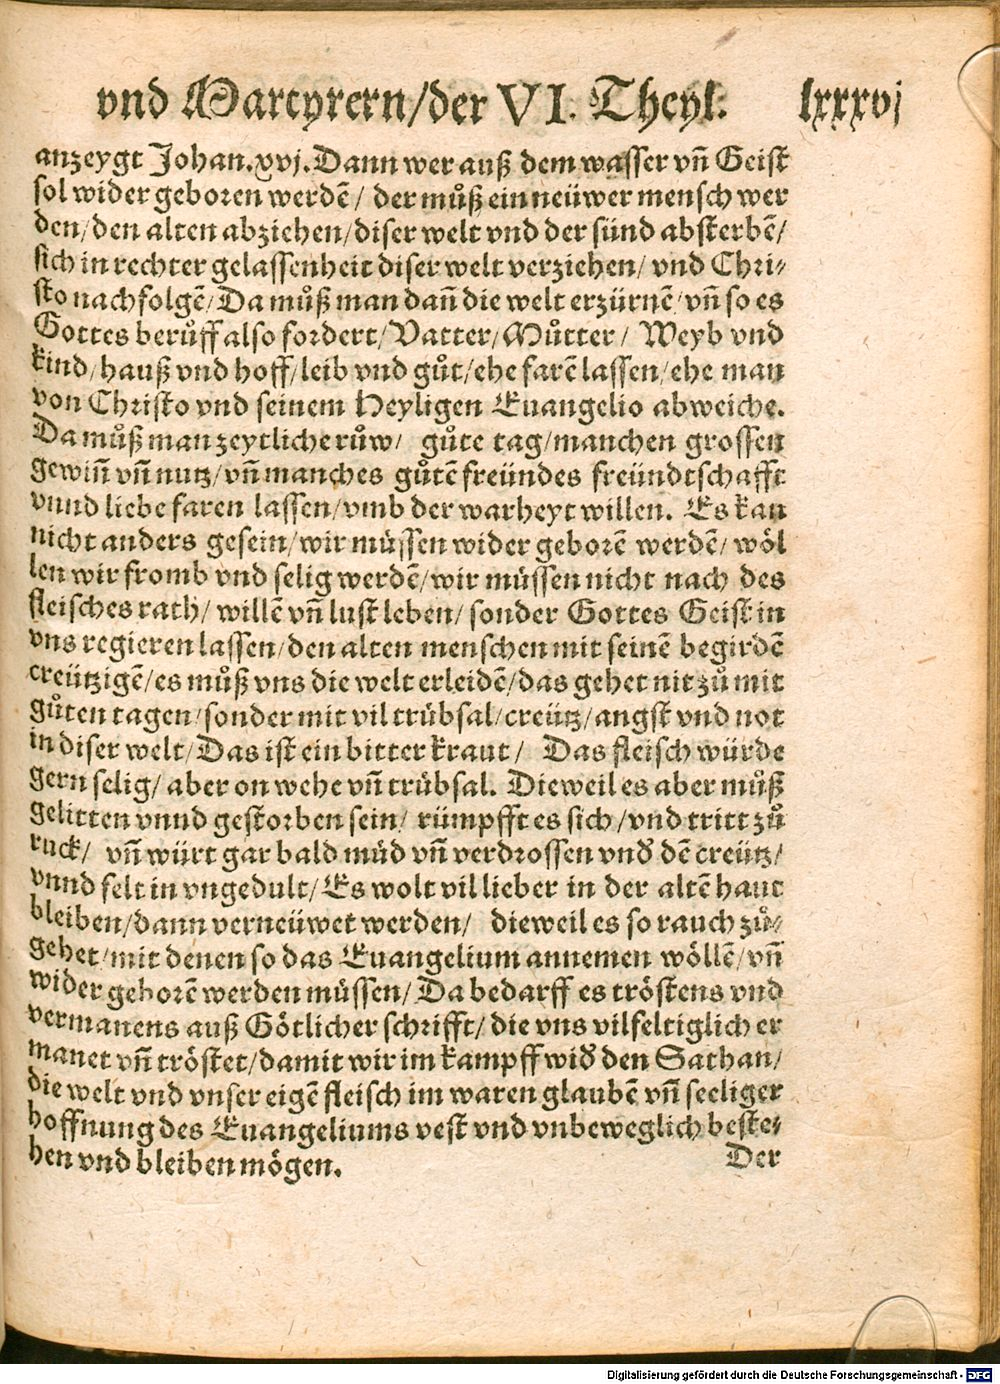 vnd Martyrern/der VI. Theyl. lxxxvj
anzeygt Johan.xvj. Dann wer auß dem wasser vñ Geist
sol wider geboren werdē/ der muͦß ein neüwer mensch wer
den/den alten abziehen/diser welt vnd der sünd absterbē/
sich in rechter gelassenheit diser welt verziehen/ vnd Chri⸗
sto nachfolgē/Da muͦß man dañ die welt erzürnē/vñ so es
Gottes beruͦff also fordert/Vatter/Muͦtter/ Weyb vnd
kind/hauß vnd hoff/leib vnd guͦt/ehe farē lassen/ehe man
von Christo vnd seinem Heyligen Euangelio abweiche.
Da muͦß man zeytliche ruͦw/ guͦte tag/manchen grossen
gewiñ vñ nutz/vñ manches guͦtē freündes freündtschafft
vnnd liebe faren lassen/vmb der warheyt willen. Es kan
nicht anders gesein/wir müssen wider geborē werdē/wöl
len wir fromb vnd selig werdē/wir müssen nicht nach des
fleisches rath/ willē vñ lust leben/ sonder Gottes Geist in
vns regieren lassen/den alten menschen mit seinē begirdē
creützigē/es muͦß vns die welt erleidē/das gehet nit zuͦ mit
guͦten tagen/sonder mit vil trübsal/creütz/angst vnd not
in diser welt/Das ist ein bitter kraut/ Das fleisch würde
gern selig/ aber on wehe vñ trübsal. Dieweil es aber muͦß
gelitten vnnd gestorben sein/ rümpfft es sich/vnd tritt zuͦ
ruck/ vñ würt gar bald müd vñ verdrossen vnd̕ dē creütz/
vnnd felt in vngedult/Es wolt vil lieber in der altē haut
bleiben/dann verneüwet werden/ dieweil es so rauch zuͦ⸗
gehet/mit denen so das Euangelium annemen wöllē/vñ
wider geborē werden müssen/Da bedarff es tröstens vnd
vermanens auß Götlicher schrifft/ die vns vilfeltiglich er
manet vñ tröstet/damit wir im kampff wid̕ den Sathan/
die welt vnd vnser eigē fleisch im waren glaubē vñ seeliger
hoffnung des Euangeliums vest vnd vnbeweglich beste⸗
hen vnd bleiben mögen.
Der
Digitalisierung gefördert durch die Deutsche Forschungsgemeinschaft - DFG